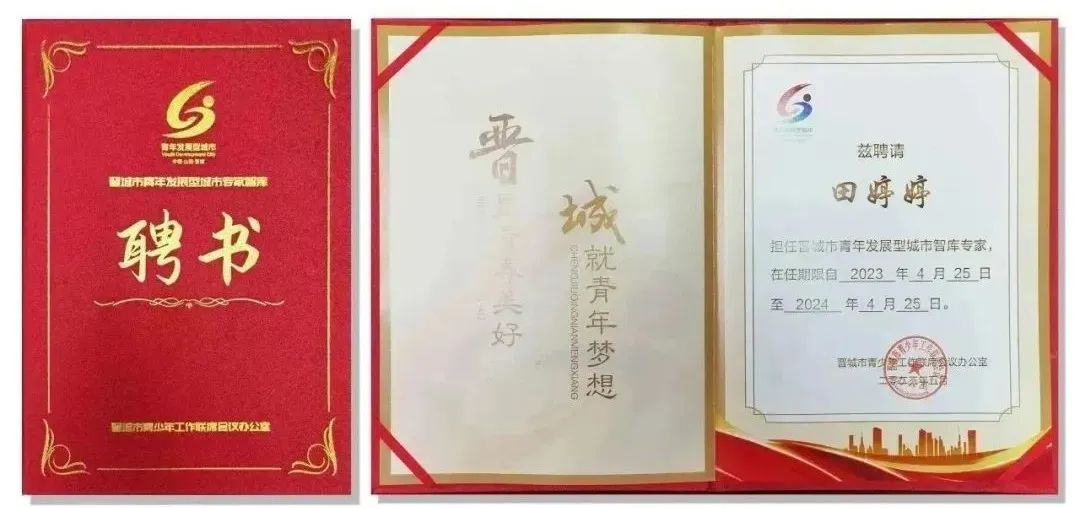 青年发展型城市
Youth Development City
中国·山西·晋城
晋城市青年发展型城市专家智库
聘书
晋城市青少年工作联席会议办公室
晋
青春美好
城
就青年梦想
CHENGJIUQINGNIANMENGXIANG
青年发展型城市
兹聘请
田婷婷
担任晋城市青年发展型城市智库专家，
在任期限自 2023 年 4 月 25 日
至 2024 年 4 月 25 日。
晋城市青少年工作联席会议办公室